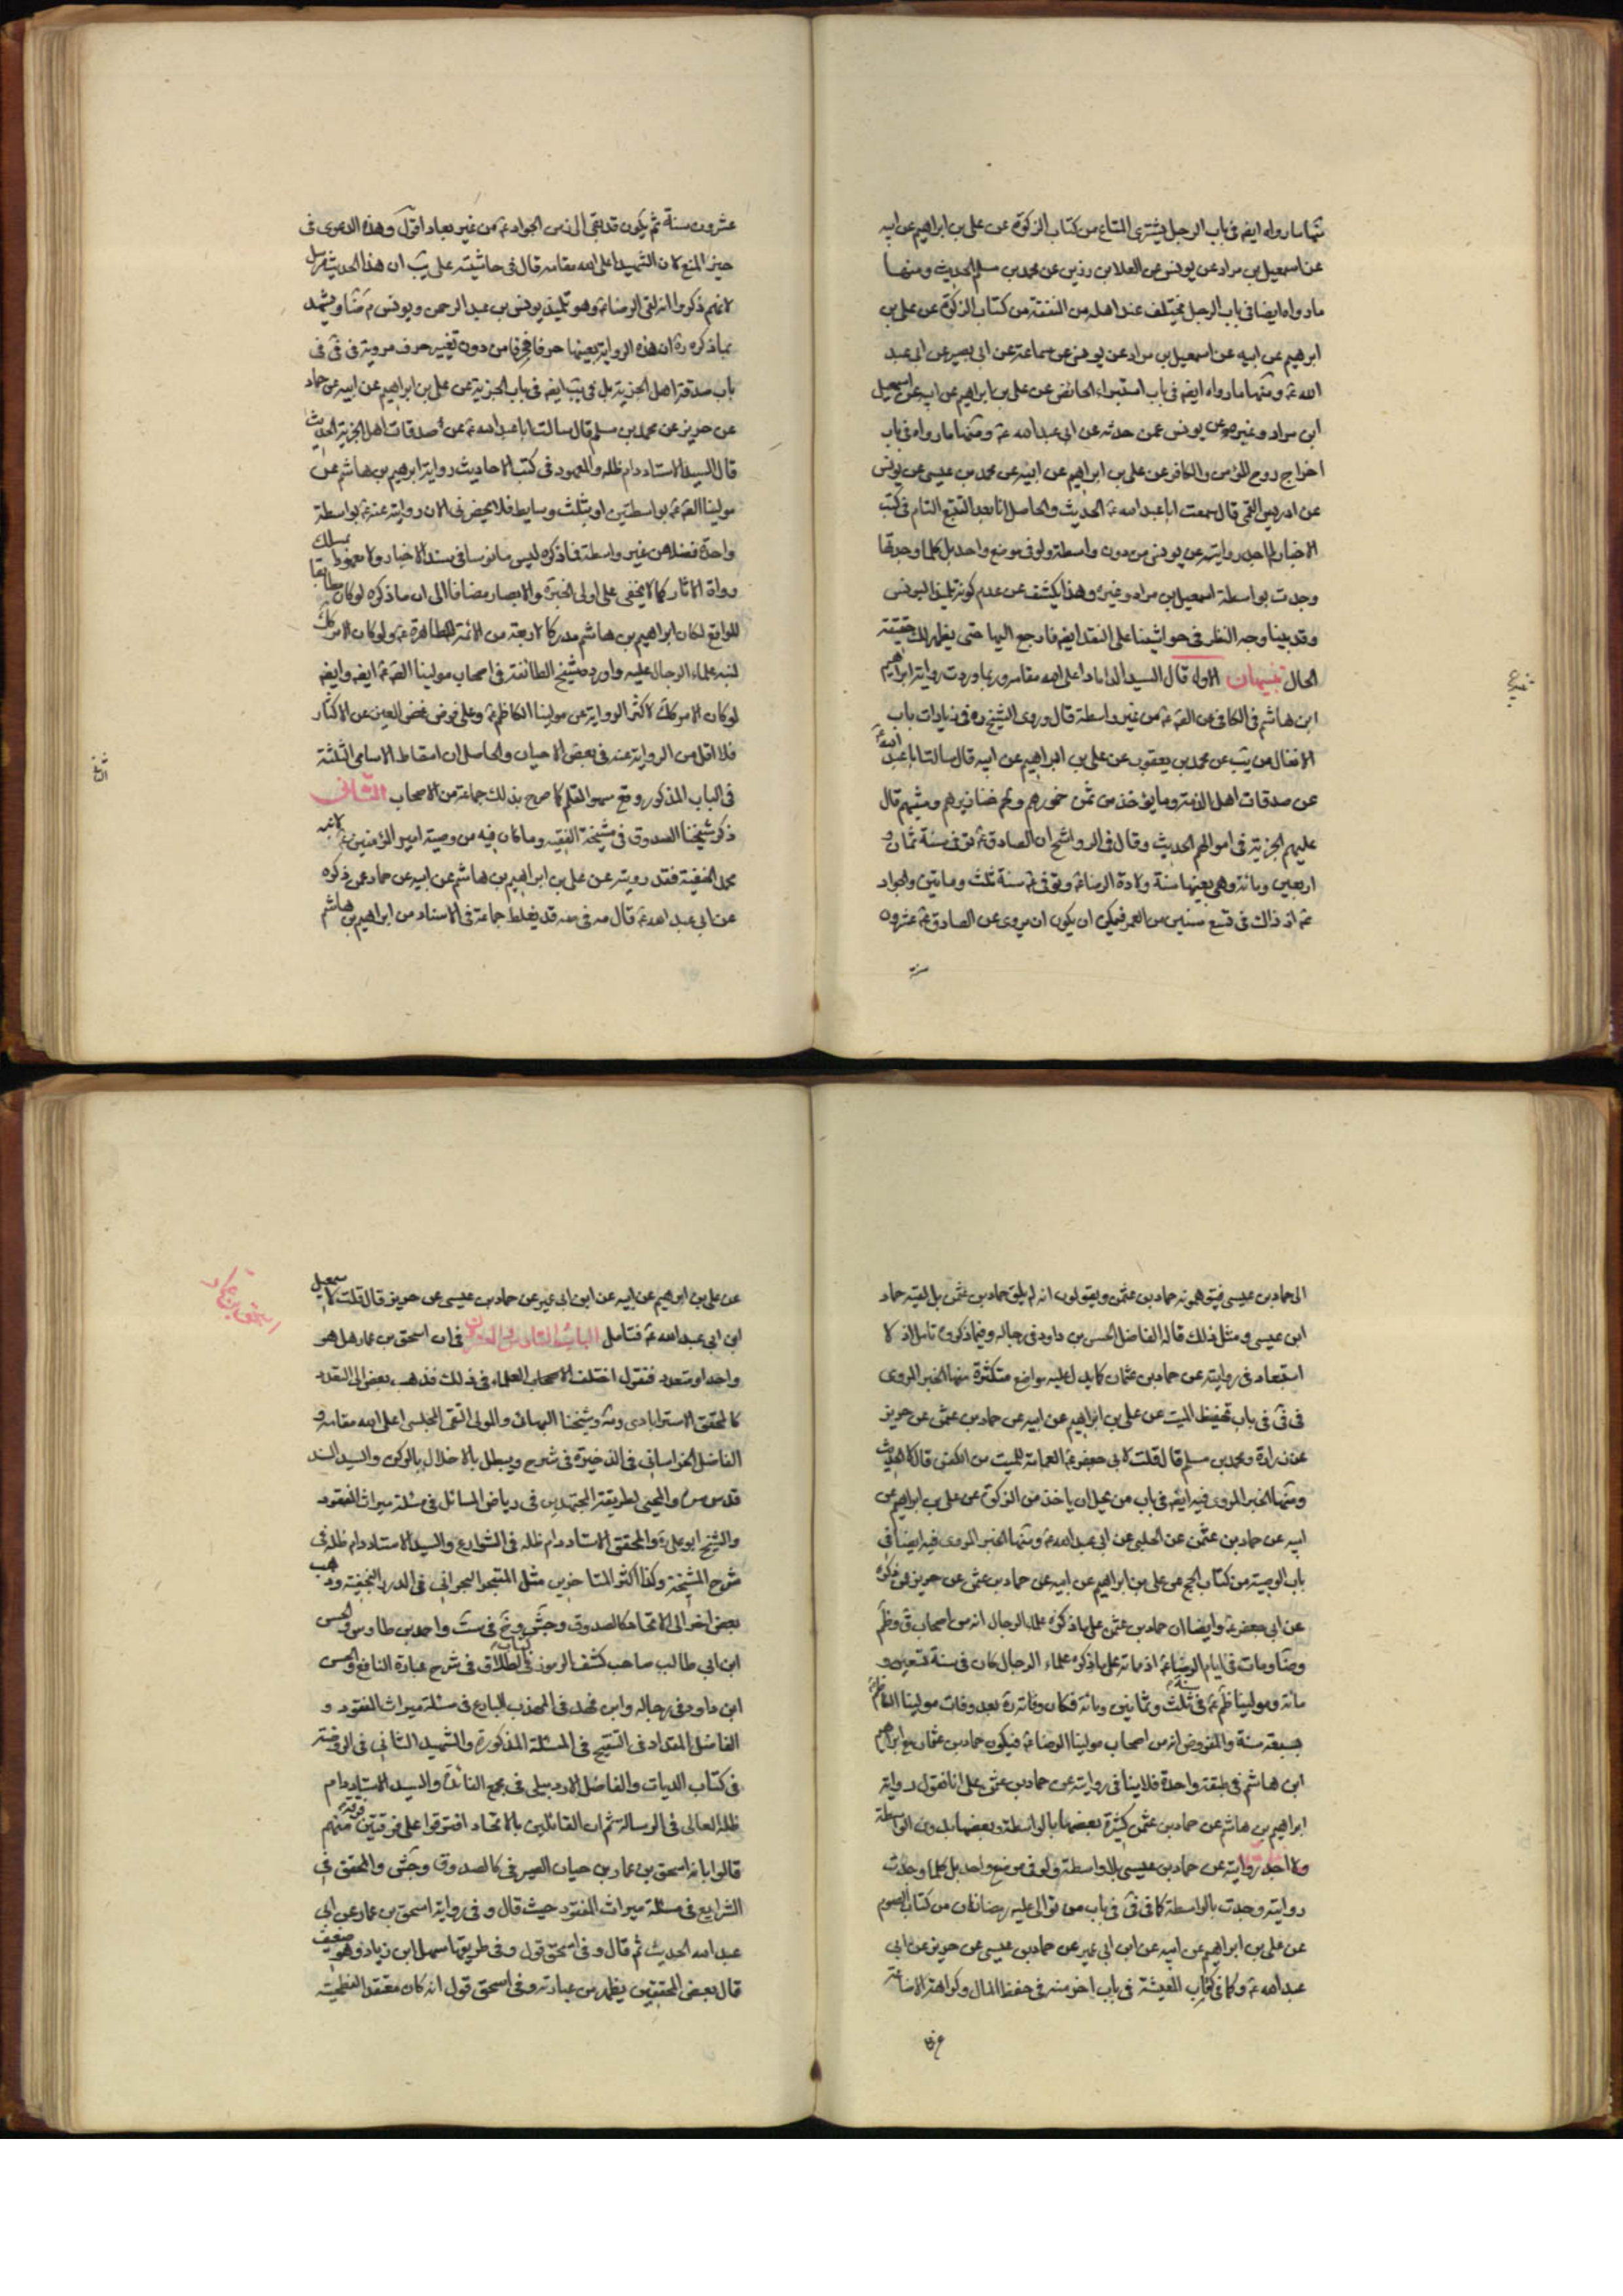 منها ما رواه ايضه فى باب الرجل يشترى المتاع من كتاب الزكوة عن على بن ابراهيم عن ابيه
عن اسمعيل بن مراد عن يونس عن العلا بن رزين عن محمد بن مسلم الحديث ومنها
ما رواه ايضا فى باب الرجل يختلف عند اهله من النفقة من كتاب الزكوة عن على بن
ابرهيم عن ابيه عن اسمعيل بن مراد عن يونس عن سماعة عن ابى بصير عن ابى عبد
الله ع ومنها ما رواه ايضه فى باب استبراء الحائض عن على بن ابراهيم عن ابيه عن اسمعيل
ابن مراد وغيره عن يونس عمن حدثه عن ابى عبد الله ع ومنها ما رواه فى باب
اخراج روح المؤمن والكافر عن على بن ابراهيم عن ابيه عن محمد بن عيسى عن يونس
عن ادريس القمى قال سمعت ابا عبد الله ع الحديث والحاصل انا بعد التتبع التام فى كتب
الاخبار لم اجد روايته عن يونس من دون واسطة ولو فى موضع واحد بل كلما وجدتها
وجدت بواسطة اسمعيل بن مراد وغيره وهذا يكشف عن عدم كونه تلميذا ليونس
وقد بينا وجه النظر فى حواشينا على النقد ايضه فارجع اليها حتى يظهر لك حقيقة
الحال تنبيهان الاول قال السيد الداماد اعلى الله مقامه وربما وردت رواية ابراهيم
ابن هاشم فى الكافى عن الصه ع من غير واسطة قال وروى الشيخ ره فى زيادات باب
الانفال من يب عن محمد بن يعقوب عن على بن ابراهيم عن ابيه قال سالت ابا عبد الله ع
عن صدقات اهل الذمة وما يؤخذ من ثمن خمورهم ولحم خنازيرهم وميتهم قال
عليهم الجزية فى اموالهم الحديث وقال فى الرواشح ان الصادق ع توفى سنة ثمان و
اربعين ومائة وهى بعينها سنة ولادة الرضا ع وتوفى ع سنة ثلث ومايتين والجواد
ع اذ ذاك فى تسع سنين من العمر فيمكن ان يكون ان يروى عن الصادق ع عشرون
سنة
عشرون سنة ثم يكون قد بقى الى زمن الجواد ع من غير بعاد اقول وهذه الدعوى فى
حيز المنع لان الشهيد اعلى الله مقامه قال فى حاشيته على يب ان هذا الحديث مرسل
لانهم ذكروا انه لقى الرضا ع وهو تلميذ يونس بن عبد الرحمن ويونس م ضا ويشهد
بما ذكره ره ان هذه الرواية بعينها حرفا فحرفا من دون تغيير حرف مروية فى فى فى
باب صدقة اهل الجزية بل فى يب ايضه فى باب الجزية عن على بن ابراهيم عن ابيه عن حماد
عن حريز عن محمد بن مسلم قال سالت ابا عبد الله ع عن صدقات اهل الجزية الحديث
قال السيد الاستاد دام ظله والمعهود فى كتب الاحاديث رواية ابرهيم بن هاشم عن
مولينا الصه ع بواسطتين او بثلث وسايط فلا يحضر فى الان رواية عنه ع بواسطة
واحدة فضلا عن غير واسطة فما ذكره ليس مانوسا فى سند الاخبار ولا معهودا بمسلك
رواة الاثار كما لا يخفى على اولى الخبرة والابصار مضافا الى ان ما ذكره لو كان مطابقا
للواقع لكان ابراهيم بن هاشم مدركا لاربعة من الائمة الطاهرة ع ولو كان الامر كك
لنبه علماء الرجال عليه واورده شيخ الطائفة فى اصحاب مولينا الصه ع ايضه وايضه
لو كان الامر كك لاكثر الرواية عن مولينا الكاظم ع وعلى فرض غض العين عن الاكثار
فلا اقل من الرواية عنه فى بعض الاحيان والحاصل ان اسقاط الاسامى الثلثة
فى الباب المذكور وقع سهو القلم كما صرح بذلك جماعة من الاصحاب الثانى
ذكر شيخنا الصدوق فى مشيخة الفقيه وما كان فيه من وصية امير المؤمنين ع لابنه
محمد الحنفية فقد رويته عن على بن ابراهيم بن هاشم عن ابيه عن حماد عن ذكره
عن ابى عبد الله ع قال مه فى صه قد يغلط جماعة فى الاسناد من ابراهيم بن هاشم
الى حماد بن عيسى فيتوهمونه حماد بن عثمن ويقولون انه لم يلق حماد بن عثمن بل لقيه حماد
ابن عيسى ومثل ذلك قاله الفاضل الحسن بن داود فى رجاله وفيما ذكروه تامل اذ لا
استبعاد فى روايته عن حماد بن عثمان كما يدل عليه مواضع متكثرة منها الخبر المروى
فى فى فى باب تحنيط الميت عن على بن ابراهيم عن ابيه عن حماد بن عثمن عن حريز
عن زرارة ومحمد بن مسلم قالا قلت لابى جعفر ع العمامة للميت من الكفن قال لا الحديث
ومنها الخبر المروى فيه ايضه فى باب من يحل ان ياخذ من الزكوة عن على بن ابراهيم عن
ابيه عن حماد بن عثمن عن الحلبى عن ابى عبد الله ع ومنها الخبر المروى فيه ايضا فى
باب الوصية من كتاب الحج عن على بن ابراهيم عن ابيه عن حماد بن عثمن عن حريز عمن ذكره
عن ابى جعفر ع وايضا ان حماد بن عثمن على ما ذكره علماء الرجال انه من اصحاب ق وظم
وضا ومات فى ايام الرضا ع اذ مماته على ما ذكره علماء الرجال كان فى سنة تسعين و
مائة ومولينا ظم ع فى سنة ثلث وثمانين ومائة فكان وفاته ره بعد وفات مولينا الكاظم ع
بسبعة سنة والمفروض انه من اصحاب مولينا الرضا ع فيكون حماد بن عثمان مع ابراهيم
ابن هاشم فى طبقة واحدة فلا ينافى روايته عن حماد بن عثمن على انا نقول رواية
ابراهيم بن هاشم عن حماد بن عثمن كثيرة بعضها بالواسطة وبعضها بدون الواسطة
ولم اجد روايته عن حماد بن عيسى بلا واسطة ولو فى موضع واحد بل كلما وجدت
روايته وجدت بالواسطة كما فى فى فى باب من توالى عليه رمضانان من كتاب الصوم
عن على بن ابراهيم عن ابيه عن ابن ابى عمير عن حماد بن عيسى عن حريز عن ابى
عبد الله ع وكما فى كتاب المعيشة فى باب اخر منه فى حفظ المال وكراهة الاضاعة
عن على بن ابرهيم عن ابيه عن ابن ابى عمير عن حماد بن عيسى عن حريز قال قلت لاسمعيل
اسحق بن عمار
ابن ابى عبد الله ع فتامل الباب السادس والعشرون فى ان اسحق بن عمار هل هو
واحد او متعدد فنقول اختلف الاصحاب العلماء فى ذلك فذهب بعض الى التعدد
كالمحقق الاسترابادى ومه وشيخنا البهائى والمولى التقى المجلسى اعلى الله مقامه و
الفاضل الخراسانى فى الذخيرة فى شرح ويبطل بالاخلال بالركن والسيد السند
قدس سره والمحيى لطريقة المجتهدين فى رياض المسائل فى مسئلة ميراث المفقود
والشيخ ابو على ره والمحقق الاستاد دام ظله فى الشوارع والسيد الاستاد دام ظله فى
شرح المشيخة وكذا اكثر المتاخرين مثل المتبحر البحرانى فى الدرر النجفية وذهب
بعض اخر الى الاتحاد كالصدوق وجش وخ فى ست واحمد بن طاوس والحسن
ابن ابى طالب صاحب كشف الرموز فى كتاب الطلاق فى شرح عبارة النافع والحسن
ابن داود فى رجاله وابن فهد فى المهذب البارع فى مسئلة ميراث المفقود و
الفاضل المقداد فى التنقيح فى المسئلة المذكورة والشهيد الثانى فى الروضة
فى كتاب الديات والفاضل الاردبيلى فى مجمع الفائدة والسيد الاستاد دام
ظله العالى فى الرسالة ثم ان القائلين بالاتحاد افترقوا على فرقتين فرقة منهم
قالوا بانه اسحق بن عمار بن حيان الصيرفى كالصدوق وجش والمحقق فى
الشرايع فى مسئلة ميراث المفقود حيث قال وفى رواية اسحق بن عمار عن ابى
عبد الله الحديث ثم قال وفى اسحق قول وفى طريقها سهل ابن زياد وهو ضعيف
قال بعض المحققين يظهر من عبارته وفى اسحق قول انه كان معتقد الفطحية